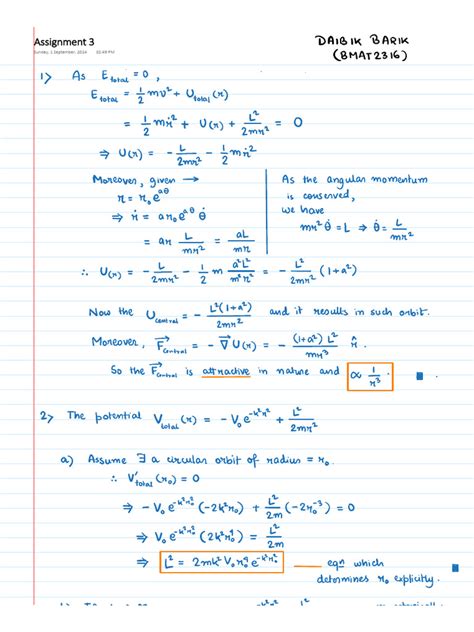 Assignment 3
DAIBIK BARIK
Sunday, 1 September, 2024 02:46 PM
(BMAT2316)
1) As E_total = 0,
E_total = 1/2 mv² + U_total(r)
= 1/2 mṙ² + U(r) + L²/2mr² = 0
⇒ U(r) = - L²/2mr² - 1/2 mṙ²
Moreover, given →
r = r₀e^{aθ}
⇒ ṙ = a r₀e^{aθ} θ̇
= ar L/mr² = aL/mr
As the angular momentum
is conserved,
we have
mr²θ̇ = L ⇒ θ̇ = L/mr²
∴ U(r) = - L²/2mr² - 1/2 m a²L²/m²r² = - L²/2mr² (1+a²)
Now the U_central = - L²(1+a²)/2mr² and it results in such orbit.
Moreover, F⃗_central = -∇⃗U(r) = - (1+a²)L²/mr³ r̂.
So the F⃗_central is attractive in nature and ∝ 1/r³.
2) The potential V_total(r) = -V₀e^{-k²r²} + L²/2mr²
a) Assume ∃ a circular orbit of radius = r₀.
∴ V'_total(r₀) = 0
⇒ -V₀e^{-k²r₀²}(-2k²r₀) + L²/2m (-2r₀⁻³) = 0
⇒ V₀e^{-k²r₀²}(2k²r₀⁴) = L²/2m
⇒ L² = 2mk²V₀r₀⁴e^{-k²r₀²} — eqn which
determines r₀ explicitly.